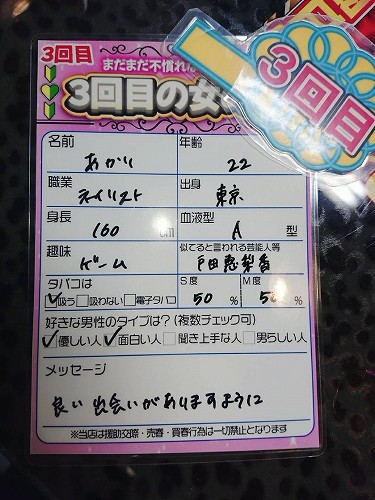 3回目
まだまだ不慣れな
3回目の女
3回目
名前 あかり
年齢 22
職業 ネイリスト
出身 東京
身長 160 cm
血液型 A 型
趣味 ゲーム
似てると言われる芸能人等 戸田恵梨香
タバコは
吸う 吸わない 電子タバコ
S度 50 %
M度 50 %
好きな男性のタイプは?(複数チェック可)
優しい人 面白い人 聞き上手な人 男らしい人
メッセージ
良い出会いがありますように
※当店は援助交際・売春・買春行為は一切禁止となります